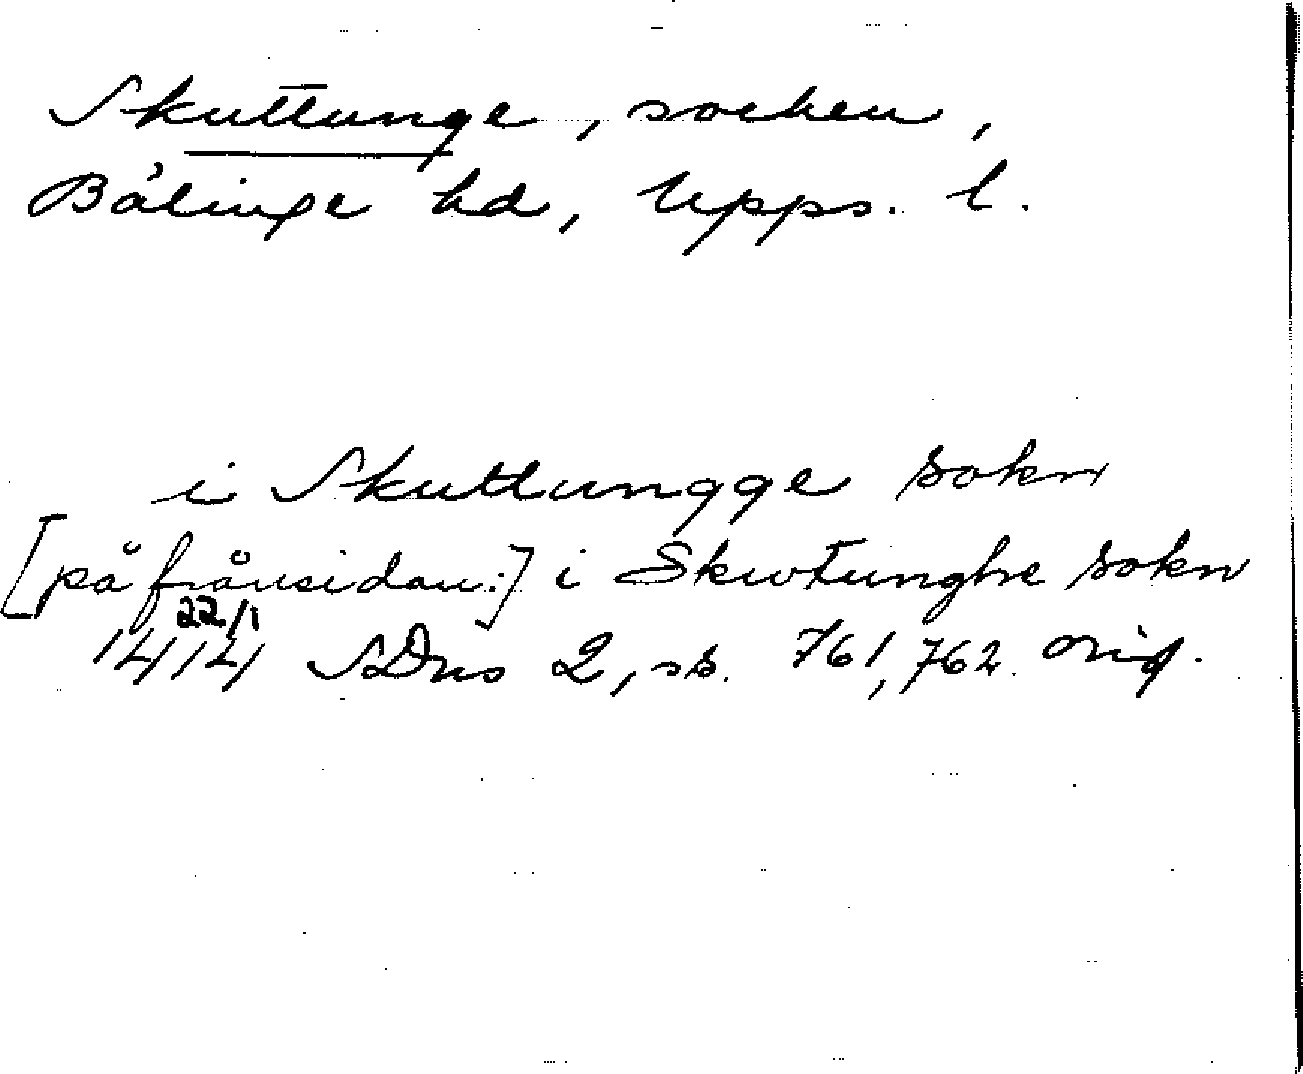 Skuttunge, socken,
Bälinge hd, Upps. l.
i Skuttungge sokn
[på frånsidan:] i Skwtunghe sokn
22/1
1414 SDns 2, ss. 761, 762. orig.